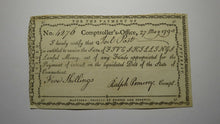 FOR THE PAYMENT OF
No. 6976 Comptroller's-Office, 27 May 1790
I hereby certify that Joel Post
is entitled to receive the Sum of FIVE SHILLINGS
Lawful Money, out of any Funds appropriated for the
Payment of Interest on the liquidated Debt of the State of
Connecticut.
Five Shillings Ralph Pomeroy Compt
HARTFORD: PRINTED BY HUDSON AND GOODWIN.